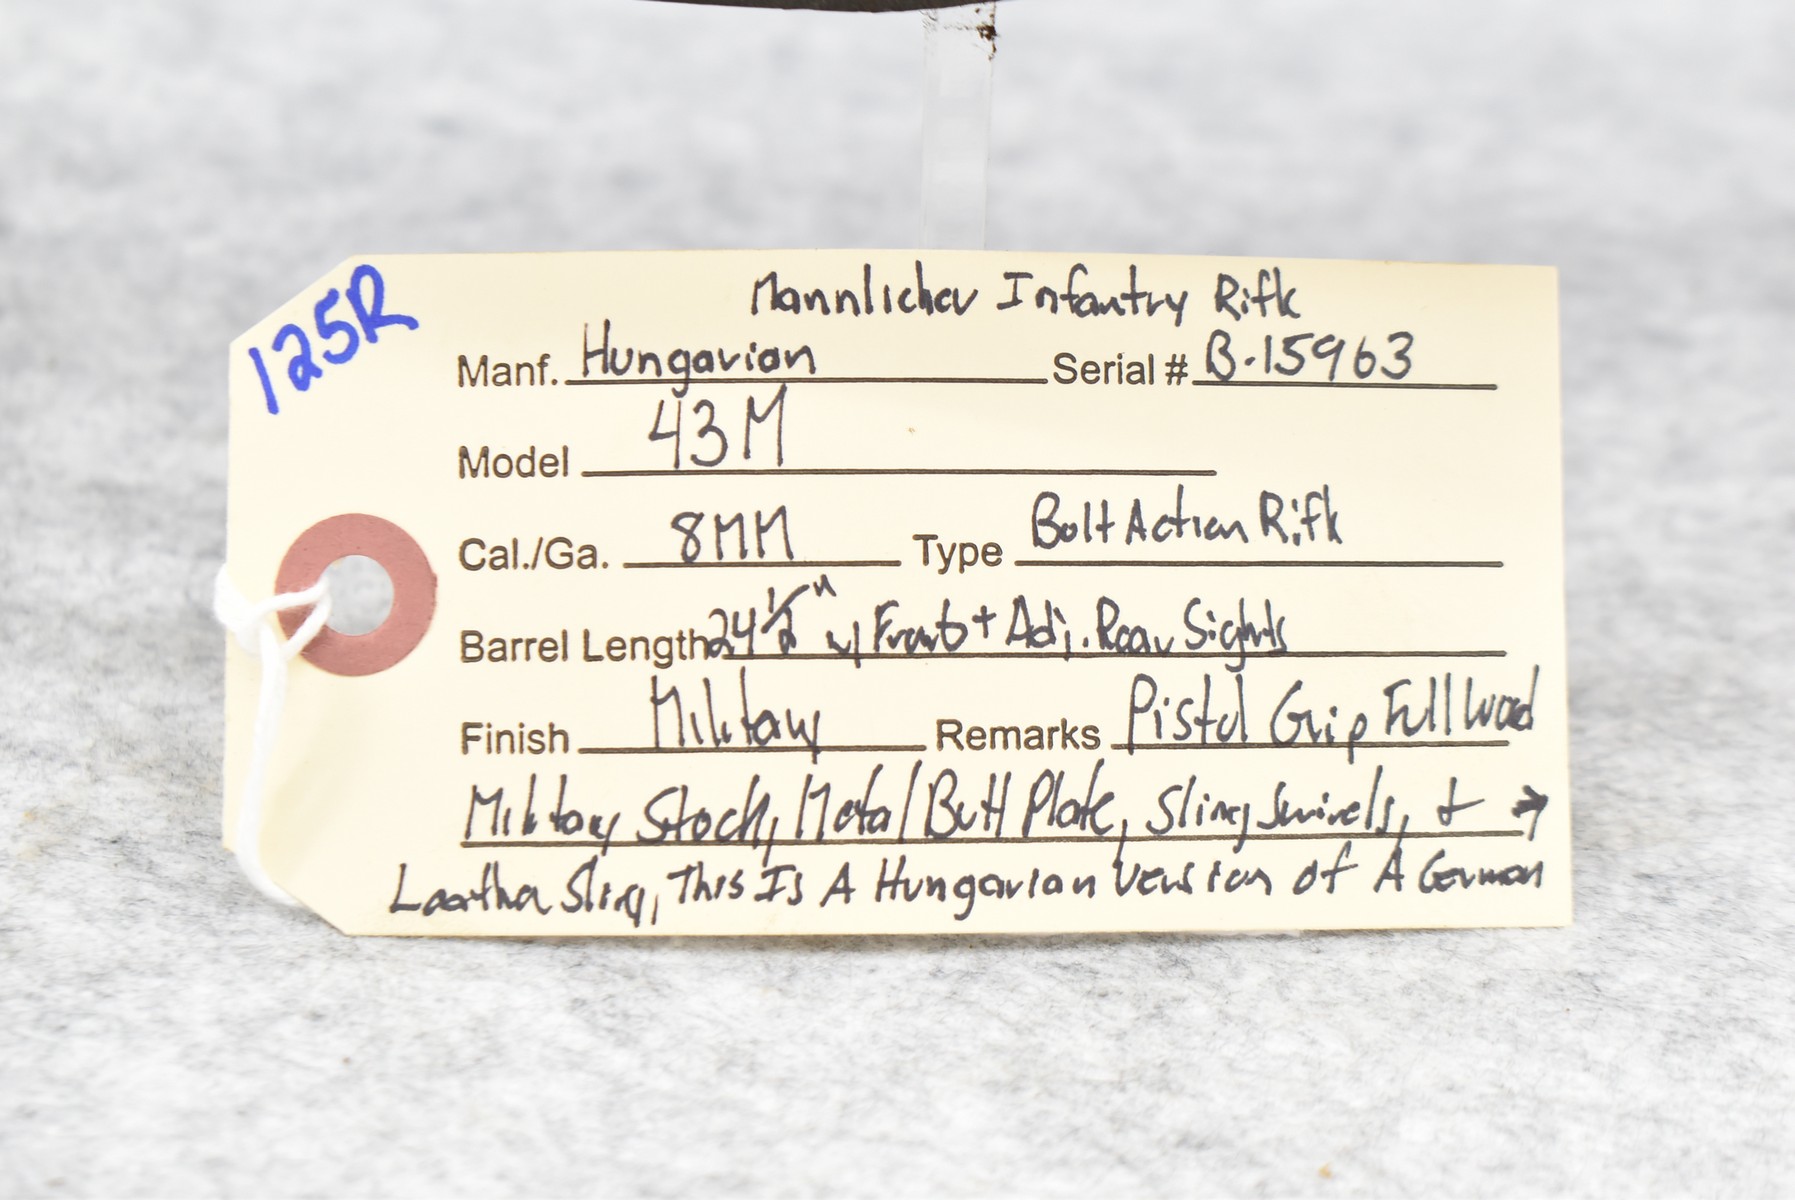 125R
Mannlicher Infantry Rifle
Manf. Hungarian Serial # B-15963
Model 43M
Cal./Ga. 8MM Type Bolt Action Rifle
Barrel Length 24 1/2" w/ Front + Adj. Rear Sights
Finish Military Remarks Pistol Grip Full Wood
Military Stock, Metal Butt Plate, Sling Swivels, + →
Leather Sling, This Is A Hungarian Version of A German